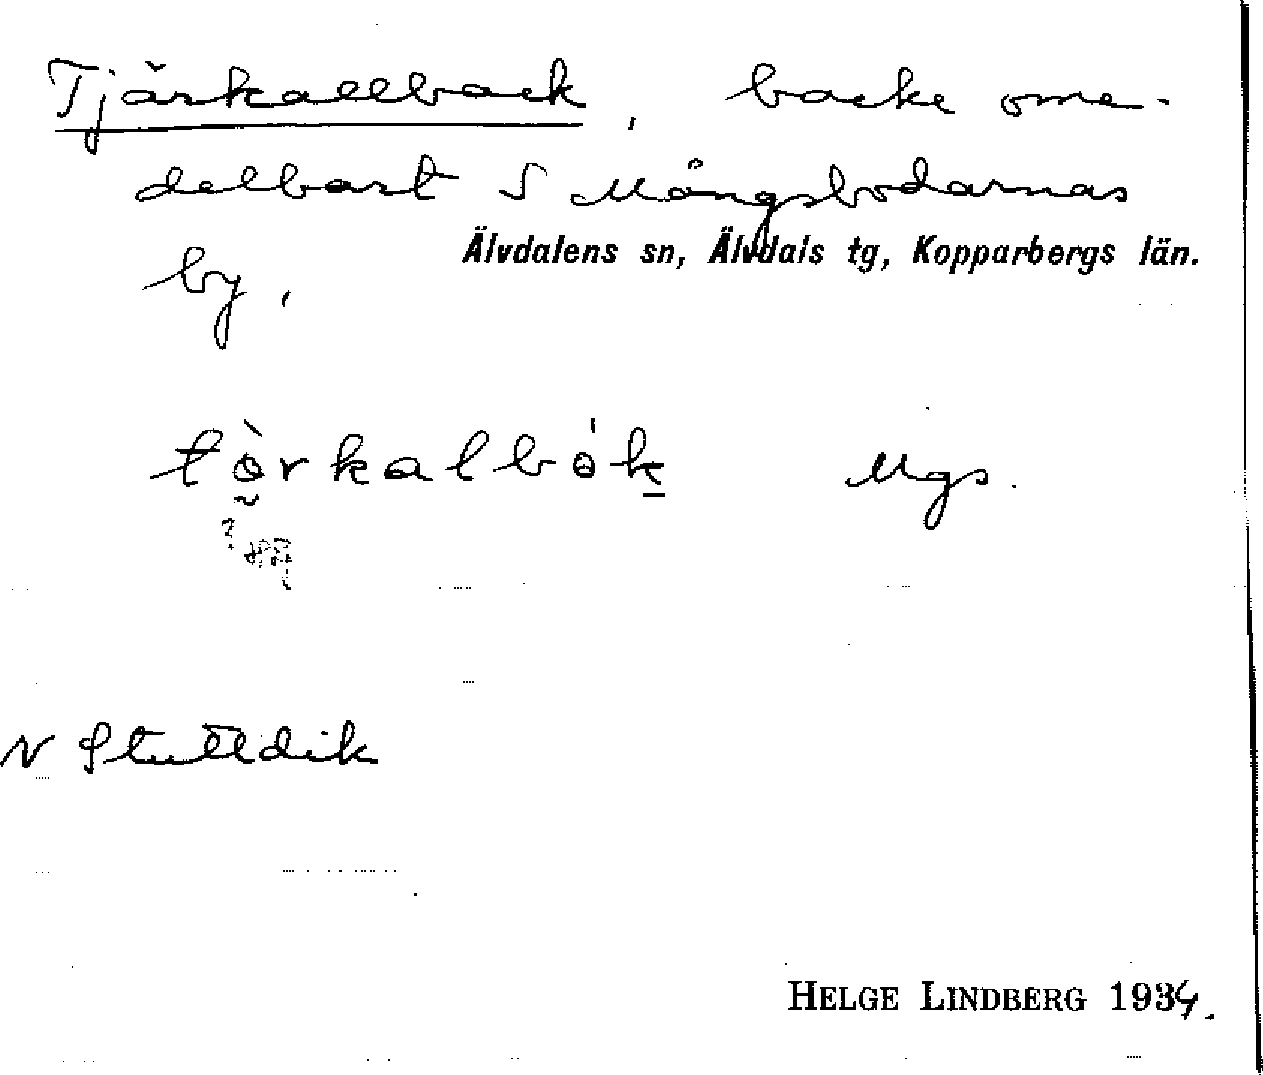 Tjärkallback, backe ome-
delbart S Mångsbodarnas
by.
Älvdalens sn, Älvdals tg, Kopparbergs län.
tò̰rkalbók̠ Mgs.
?
N Stutldik
HELGE LINDBERG 1934.